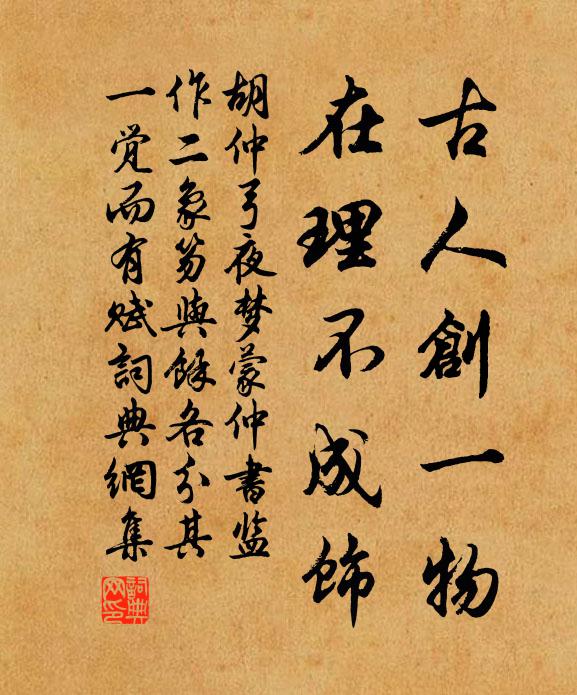 古人創一物
在理不成飾
胡仲弓夜梦蒙仲书监
作二象笏與馀各分其
一觉而有赋詞典網集
詞典網印